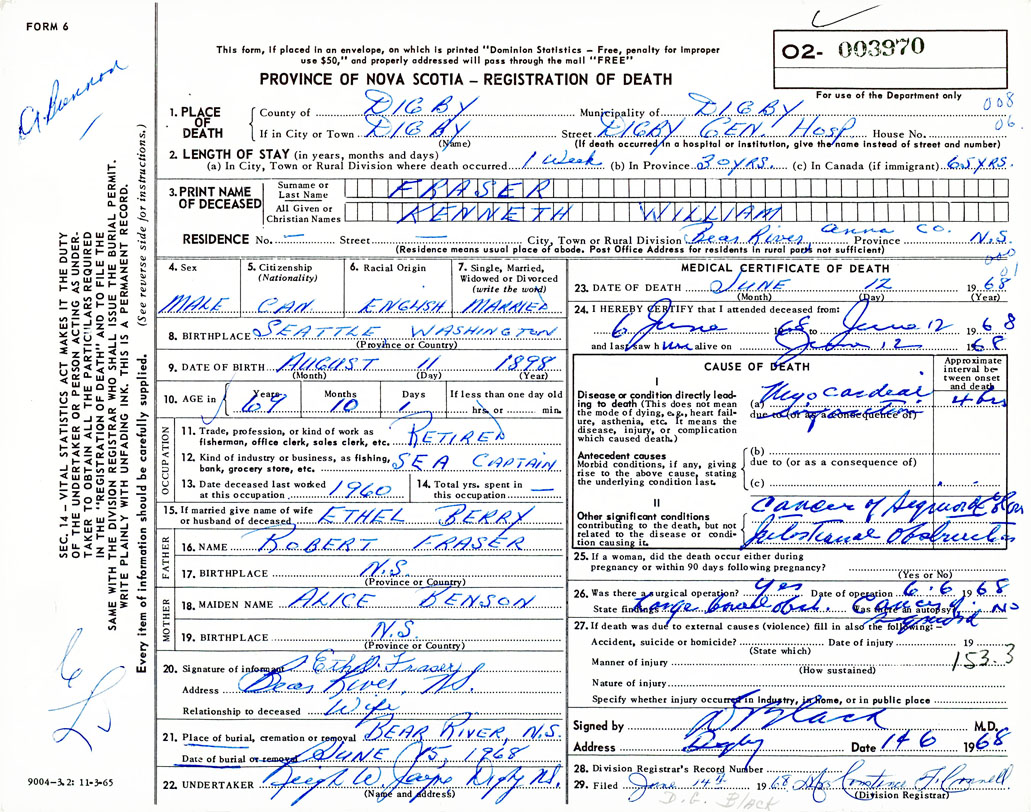 FORM 6
O2- 003970
This form, if placed in an envelope, on which is printed "Dominion Statistics – Free, penalty for improper
use $50," and properly addressed will pass through the mail "FREE"
PROVINCE OF NOVA SCOTIA – REGISTRATION OF DEATH
For use of the Department only
008
06
1. PLACE OF DEATH
County of DIGBY Municipality of DIGBY
If in City or Town DIGBY Street DIGBY GEN. HOSP House No.
(Name) (If death occurred in a hospital or institution, give the name instead of street and number)
2. LENGTH OF STAY (in years, months and days)
(a) In City, Town or Rural Division where death occurred 1 Week (b) In Province 30 YRS. (c) In Canada (if immigrant) 65 YRS.
3. PRINT NAME OF DECEASED
Surname or Last Name FRASER
All Given or Christian Names KENNETH WILLIAM
RESIDENCE No. — Street — City, Town or Rural Division Bear River Anna Co. Province N.S.
(Residence means usual place of abode. Post Office Address for residents in rural parts not sufficient)
4. Sex
MALE
5. Citizenship
(Nationality)
CAN.
6. Racial Origin
ENGLISH
7. Single, Married,
Widowed or Divorced
(write the word)
MARRIED
8. BIRTHPLACE SEATTLE WASHINGTON
(Province or Country)
9. DATE OF BIRTH AUGUST 11 1898
(Month) (Day) (Year)
10. AGE in Years 69 Months 10 Days 1 If less than one day old
hrs. or min.
OCCUPATION
11. Trade, profession, or kind of work as
fisherman, office clerk, sales clerk, etc. RETIRED
12. Kind of industry or business, as fishing,
bank, grocery store, etc. SEA CAPTAIN
13. Date deceased last worked
at this occupation 1960
14. Total yrs. spent in
this occupation —
15. If married give name of wife
or husband of deceased ETHEL BERRY
FATHER
16. NAME ROBERT FRASER
17. BIRTHPLACE N.S.
(Province or Country)
MOTHER
18. MAIDEN NAME ALICE BENSON
19. BIRTHPLACE N.S.
(Province or Country)
20. Signature of informant Ethel Fraser
Address Bear River, N.S.
Relationship to deceased Wife
21. Place of burial, cremation or removal BEAR RIVER, N.S.
Date of burial or removal JUNE 15, 1968
22. UNDERTAKER Hugh W. Jayne Digby N.S.
(Name and address)
MEDICAL CERTIFICATE OF DEATH
23. DATE OF DEATH JUNE 12 1968
(Month) (Day) (Year)
24. I HEREBY CERTIFY that I attended deceased from:
6 June 1968 to June 12 1968
and last saw him alive on June 12 1968
CAUSE OF DEATH
Approximate
interval be-
tween onset
and death
I
Disease or condition directly lead-
ing to death (This does not mean
the mode of dying, e.g., heart fail-
ure, asthenia, etc. It means the
disease, injury, or complication
which caused death.)
(a) Myocardial Infarction 4 hrs
due to (or as a consequence of)
Antecedent causes
Morbid conditions, if any, giving
rise to the above cause, stating
the underlying condition last.
(b)
due to (or as a consequence of)
(c)
II
Other significant conditions
contributing to the death, but not
related to the disease or condi-
tion causing it.
Cancer of Sigmoid Colon
Intestinal Obstruction
25. If a woman, did the death occur either during
pregnancy or within 90 days following pregnancy?
(Yes or No)
26. Was there a surgical operation? Yes Date of operation 6.6 1968
State findings Large bowel obst. Cancer of Sigmoid Was there an autopsy? No
27. If death was due to external causes (violence) fill in also the following: –
Accident, suicide or homicide? Date of injury 19
(State which)
Manner of injury 153.3
(How sustained)
Nature of injury
Specify whether injury occurred in Industry, in Home, or in public place
Signed by D Black M.D.
Address Digby Date 14 6 1968
28. Division Registrar's Record Number
29. Filed June 14th 1968 Constance F. Connell
(Division Registrar)
D. G. BLACK
SEC. 14 – VITAL STATISTICS ACT MAKES IT THE DUTY
OF THE UNDERTAKER OR PERSON ACTING AS UNDER-
TAKER TO OBTAIN ALL THE PARTICULARS REQUIRED
IN THE "REGISTRATION OF DEATH" AND TO FILE THE
SAME WITH THE DIVISION REGISTRAR WHO SHALL ISSUE THE BURIAL PERMIT.
WRITE PLAINLY WITH UNFADING INK. THIS IS A PERMANENT RECORD.
Every item of information should be carefully supplied. (See reverse side for instructions.)
9004–3.2: 11-3-65